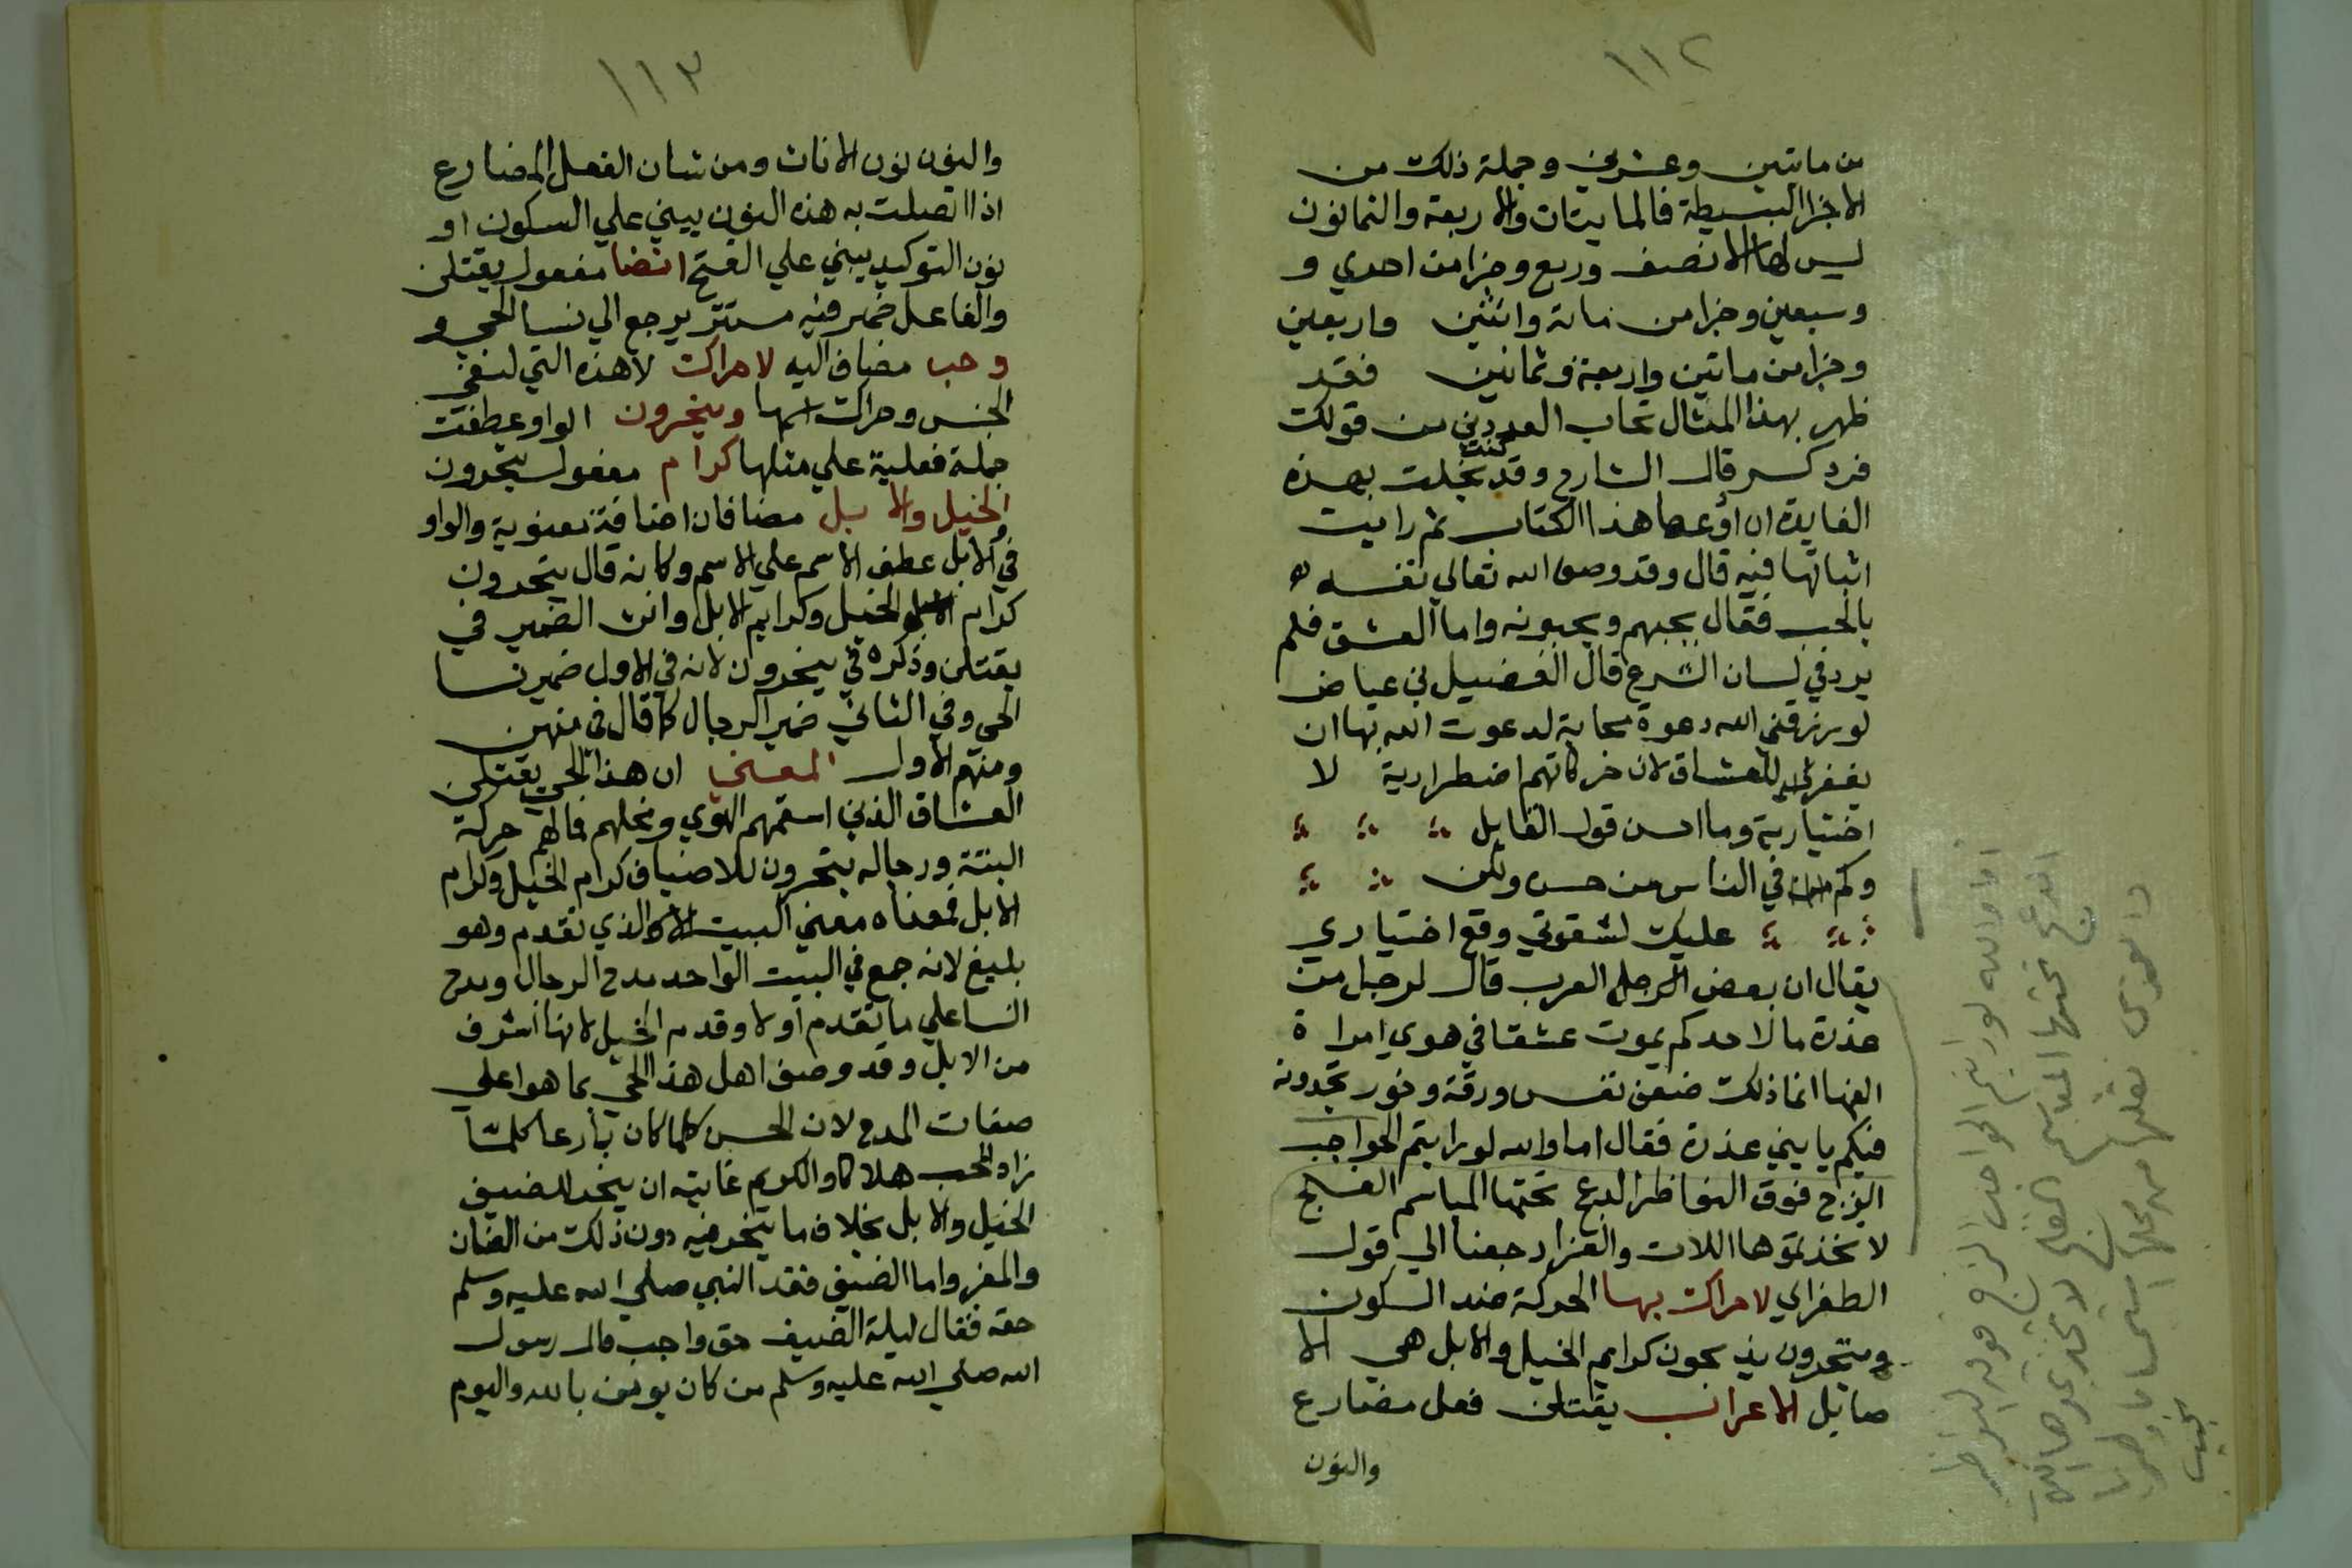 ١١٢
من ماتين وعشرين وجملة ذلك من
الاجزا البسيطة فالمايتان والاربعة والثمانون
ليس لها الا نصف وربع وجزا من احدي و
وسبعين وجزا من ماتة واثنين واربعين
وجزا من ماتين واربعة وثمانين فقد
ظهر بهذا المثال تحاب العددين من قولك
فرد كسر قال الشارح وقد كنت بخلت بهذه
الفايدة ان اوعها هذا الكتاب ثم رايت
اثباتها فيه قال وقد وصف الله تعالي نفسه
بالحب فقال يحبهم ويحبونه واما العشق فلم
يرد في لسان الشرع قال الفضيل بن عياض
لو رزقني الله دعوة مجابة لدعوت الله بها ان
يغفر للعشاق لان حركاتهم اضطرارية لا
اختيارية وما احسن قول القايل
وكم في الناس من حسن ولكن
عليك لشقوتي وقع اختياري
يقال ان بعض العرب قال لرجل من
عذرة ما لاحدكم يموت عشقا في هوي امراة
الفها انما ذلك ضعف نفس ورقة وخور تجدونه
فيكم يا بني عذرة فقال اما والله لو رايتم الحواجب
الزج فوق النواظر الدعج تحتها المباسم الفلج
لاتخذتموها اللات والعزا رجعنا الي قول
الطغراي لاحراك بها الحركة ضد السكون
وينحرون يذبحون كرايم الخيل والابل هي الا
صايل الاعراب يقتلن فعل مضارع
والنون
اما والله لو رايتم الحواجب الزج فوق النواظر
الدعج تحتها المباسم الفلج لاتخذتموها اللات
والعزى
١١٣
والنون نون الاناث ومن شان الفعل المضارع
اذا اتصلت به هذه النون يبني علي السكون او
نون التوكيد يبني علي الفتح انضا مفعول يقتلن
والفاعل ضمير فيه مستتر يرجع الي نسا الحي و
وحب مضاف اليه لاحراك لا هذه التي لنفي
الجنس وحراك اسمها وينحرون الواو عطفت
جملة فعلية علي مثلها كرام مفعول ينحرون
الخيل والابل مضافان اضافة معنوية والواو
في والابل عطف الاسم علي الاسم وكانه قال ينحرون
كرام الخيل وكرايم الابل وانث الضمير في
يقتلن وذكره في ينحرون لانه في الاول ضمير نسا
الحي وفي الثاني ضمير الرجال كما قال في منهن
ومنهم الاول المعني ان هذا الحي يقتلن
العشاق الذين اسقمهم الهوي ونحلهم فما لهم حركة
البتة ورجاله ينحرون للاضياف كرام الخيل وكرام
الابل فمعناه معني البيت الذي تقدم وهو
بليغ لانه جمع في البيت الواحد مدح الرجال ومدح
النسا علي ما تقدم اولا وقدم الخيل لانها اشرف
من الابل وقد وصف اهل هذا الحي بما هو اعلي
صفات المدح لان الحسن كلما كان بارعا كلمتا
زاد المحب هلاكا والكريم غايته ان ينحر للضيف
الخيل والابل بخلاف ما ينحر فيه دون ذلك من الضان
والمعز واما الضيف فقد النبي صلي الله عليه وسلم
حقه فقال ليلة الضيف حق واجب قال رسول
الله صلي الله عليه وسلم من كان يومن بالله واليوم